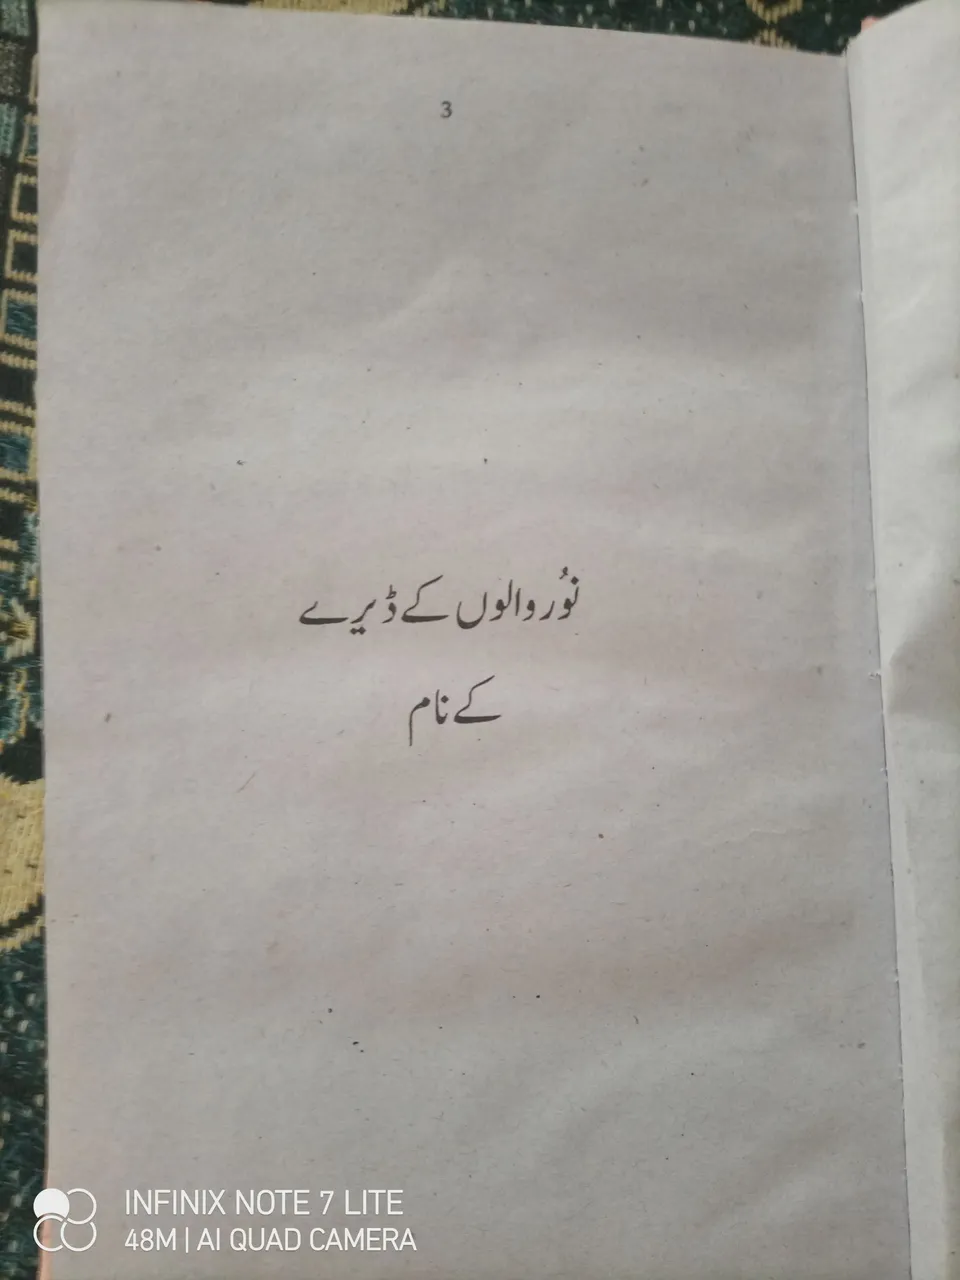 3
نوُر والوں کے ڈیرے
کے نام
INFINIX NOTE 7 LITE
48M | AI QUAD CAMERA